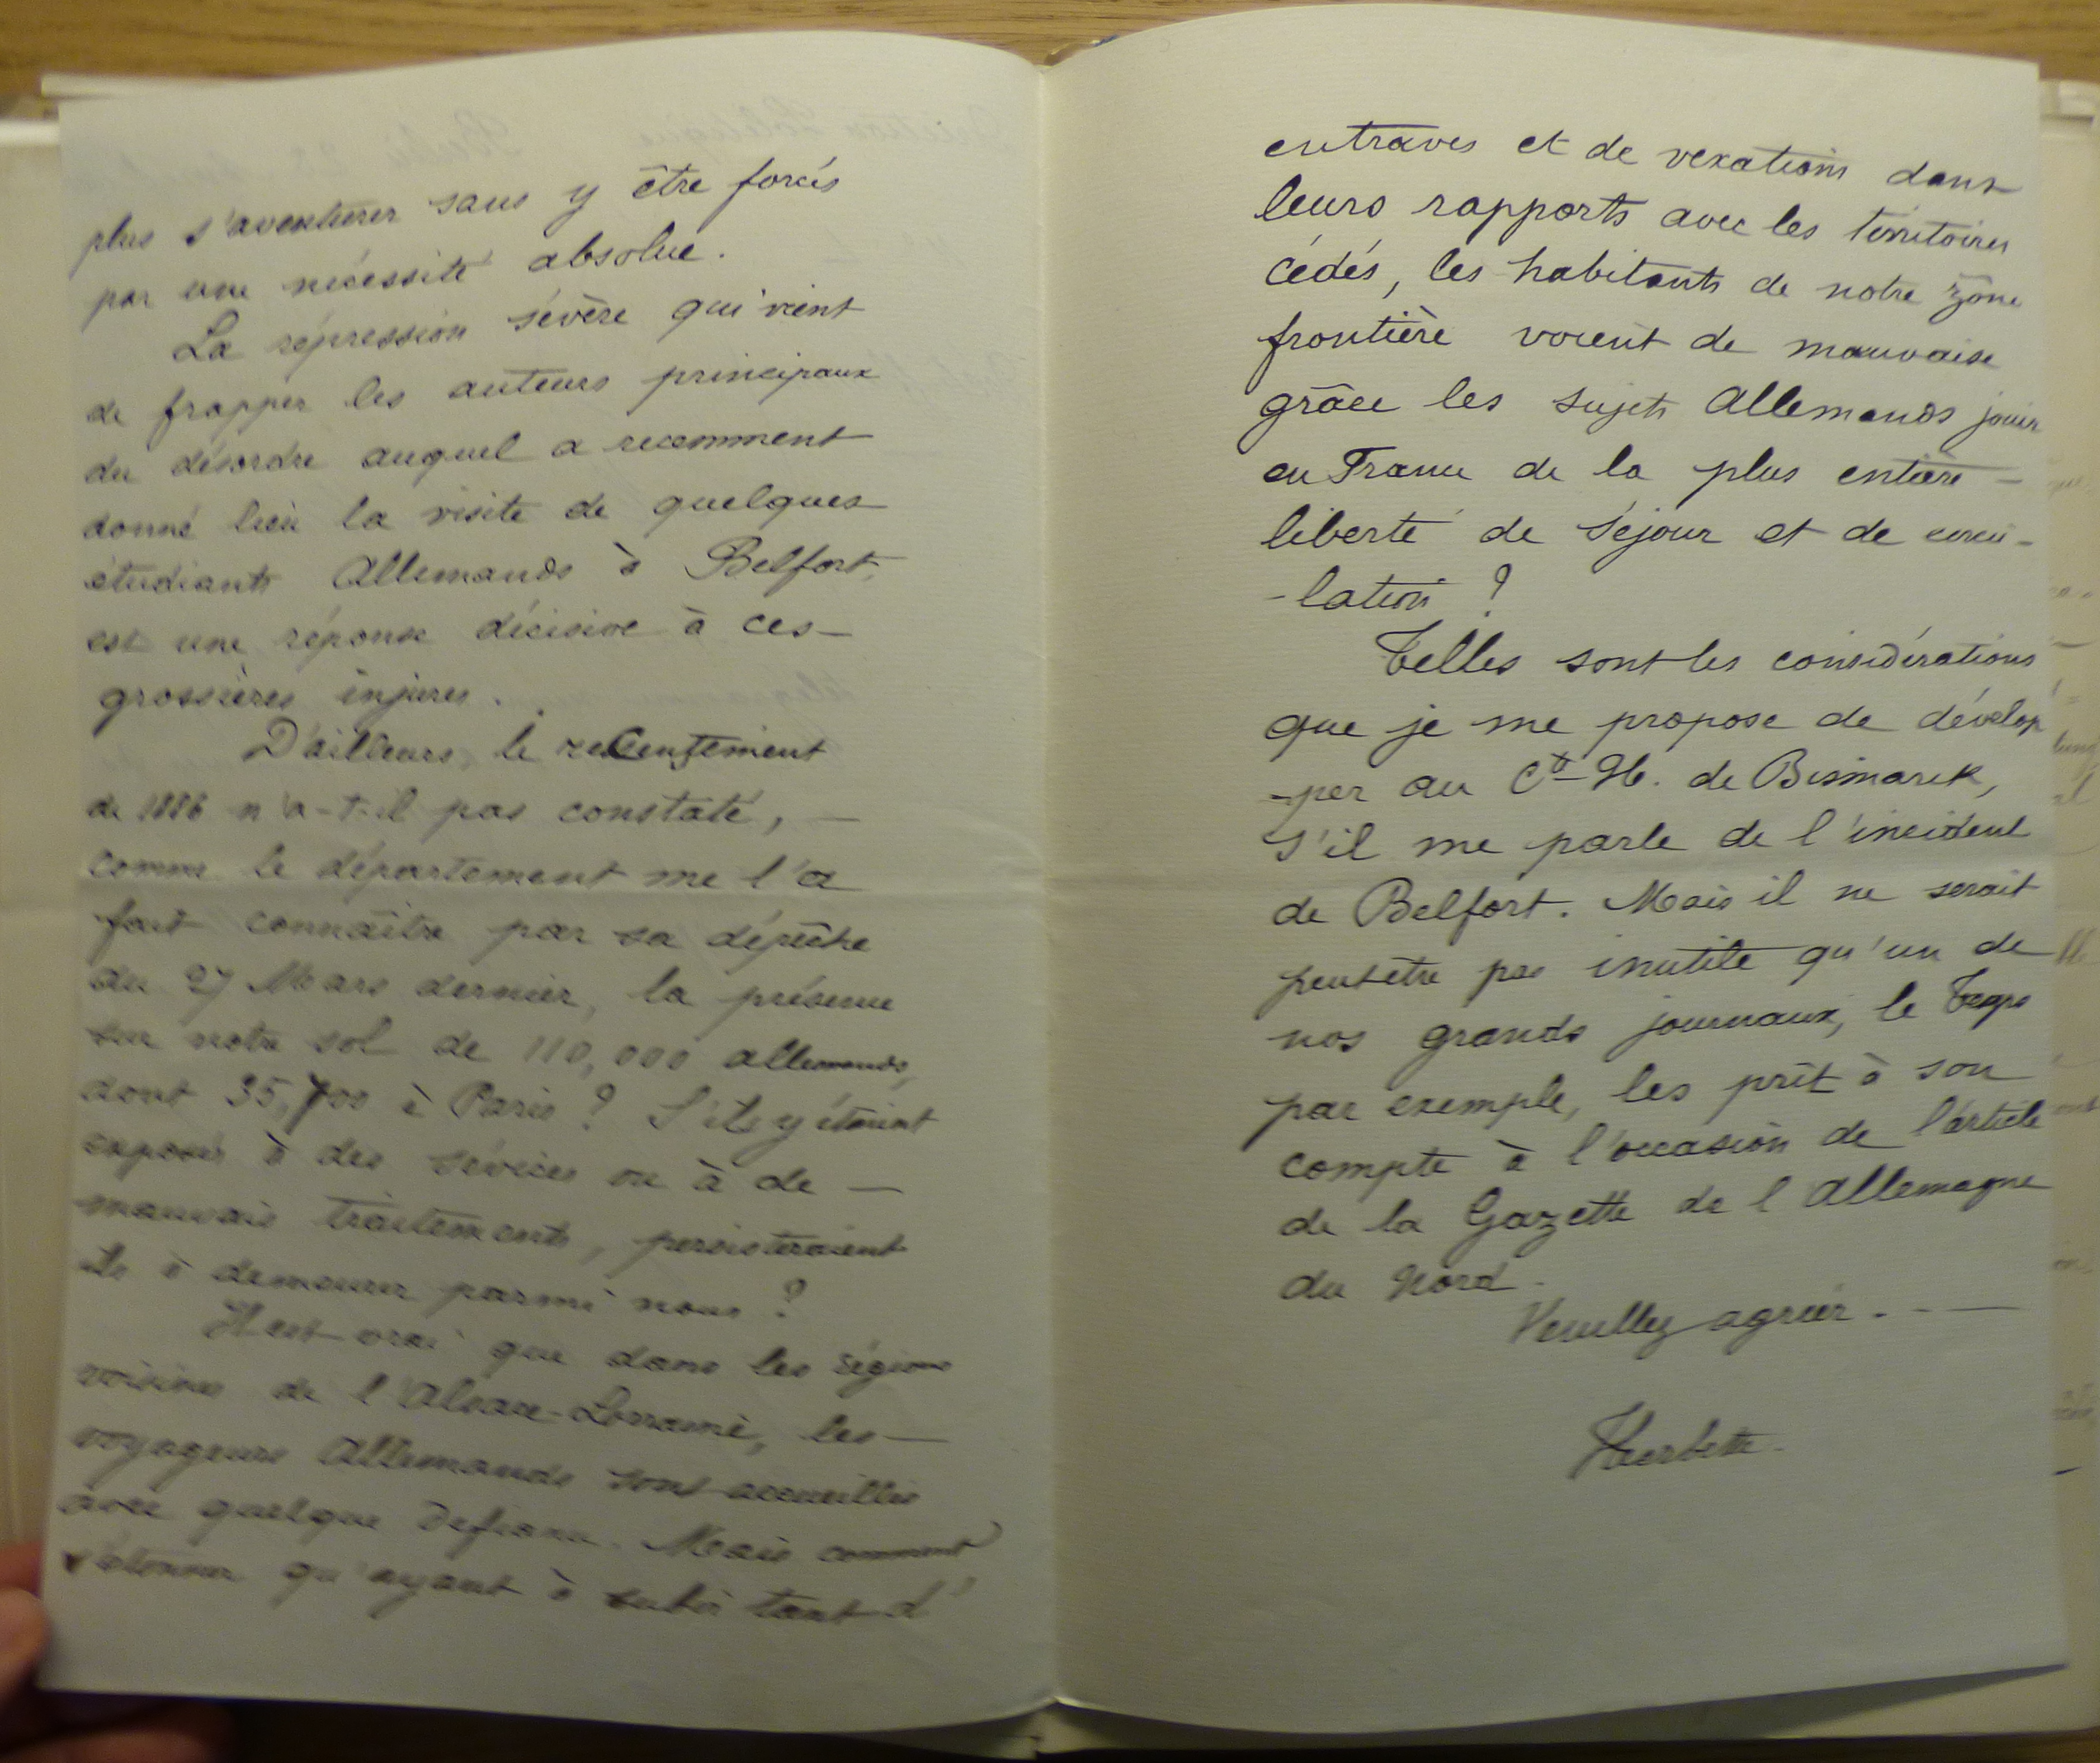 plus s'aventurer sans y être forcés
par une nécessité absolue.
La répression sévère qui vient
de frapper les auteurs principaux
du désordre auquel a recemment
donné lieu la visite de quelques
étudiants Allemands à Belfort,
est une réponse décisive à ces
grossières injures.
D'ailleurs, le recensement
de 1886 n'a-t-il pas constaté,
comme le département me l'a
fait connaître par sa dépêche
du 27 Mars dernier, la présence
sur notre sol de 110,000 allemands,
dont 35,700 à Paris ? S'ils y étaient
exposés à des sévices ou à de
mauvais traitements, persisteraient
ils à demeurer parmi nous ?
Il est vrai que dans les régions
voisines de l'Alsace-Lorraine, les
voyageurs Allemands sont accueillis
avec quelque défiance. Mais comment
s'étonner qu'ayant à subir tant d'
entraves et de vexations dans
leurs rapports avec les territoires
cédés, les habitants de notre zône
frontière voient de mauvaise
grâce les sujets Allemands jouir
en France de la plus entière
liberté de séjour et de circu-
-lation ?
Telles sont les considérations
que je me propose de dévelop
-per au Cte H. de Bismarck,
s'il me parle de l'incident
de Belfort. Mais il ne serait
peut être pas inutile qu'un de
nos grands journaux, le Temps
par exemple, les prît à son
compte à l'occasion de l'article
de la Gazette de l'Allemagne
du Nord.
Veuillez agréer . - -
Herbette.